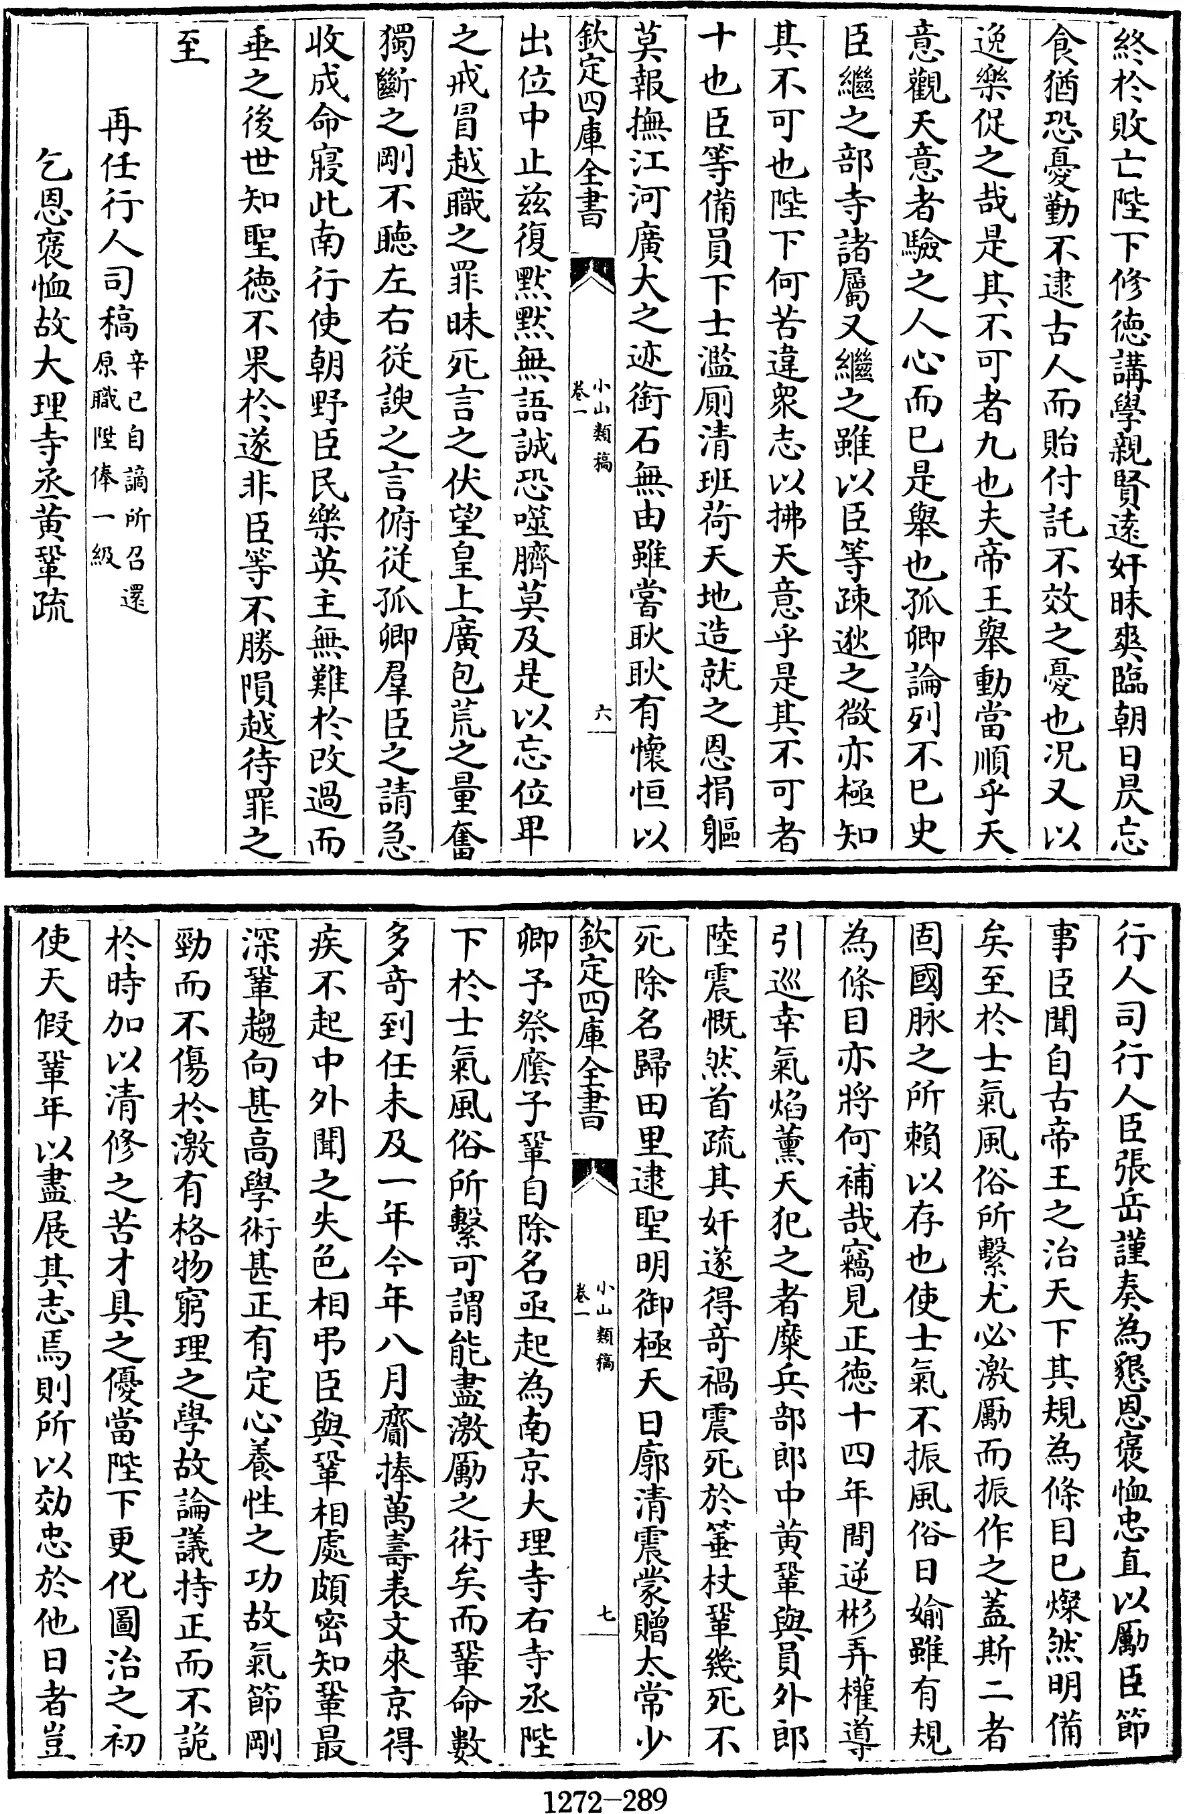 終於敗亡陛下修徳講學親賢逺奸昧爽臨朝日昃忘
食猶恐憂勤不逮古人而貽付託不效之憂也况又以
逸樂促之哉是其不可者九也夫帝王舉動當順乎天
意觀天意者驗之人心而已是舉也孤卿論列不已史
臣繼之部寺諸屬又繼之雖以臣等疎逖之微亦極知
其不可也陛下何苦違衆志以拂天意乎是其不可者
十也臣等備員下士濫厠清班荷天地造就之恩捐軀
莫報撫江河廣大之迹銜石無由雖嘗耿耿有懷恒以
欽定四庫全書
小山類稿
卷一
六
出位中止兹復黙黙無語誠恐噬臍莫及是以忘位卑
之戒冒越職之罪昧死言之伏望皇上廣包荒之量奮
獨斷之剛不聽左右從諛之言俯從孤卿羣臣之請急
收成命寢此南行使朝野臣民樂英主無難於改過而
垂之後世知聖徳不果於遂非臣等不勝隕越待罪之
至
再任行人司稿
辛巳自謫所召還
原職陞俸一級
乞恩褒恤故大理寺丞黄鞏疏
行人司行人臣張岳謹奏為懇恩褒恤忠直以勵臣節
事臣聞自古帝王之治天下其規為條目已燦然明備
矣至於士氣風俗所繫尤必激勵而振作之蓋斯二者
固國脉之所賴以存也使士氣不振風俗日媮雖有規
為條目亦將何補哉竊見正徳十四年間逆彬弄權導
引巡幸氣焰薰天犯之者糜兵部郎中黄鞏與員外郎
陸震慨然首疏其奸遂得奇禍震死於箠杖鞏幾死不
死除名歸田里逮聖明御極天日廓清震蒙贈太常少
欽定四庫全書
小山類稿
卷一
七
卿予祭廕子鞏自除名亟起為南京大理寺右寺丞陛
下於士氣風俗所繫可謂能盡激勵之術矣而鞏命數
多奇到任未及一年今年八月齎捧萬壽表文來京得
疾不起中外聞之失色相弔臣與鞏相處頗密知鞏最
深鞏趨向甚高學術甚正有定心養性之功故氣節剛
勁而不傷於激有格物窮理之學故論議持正而不詭
於時加以清修之苦才具之優當陛下更化圖治之初
使天假鞏年以盡展其志焉則所以効忠於他日者豈
1272-289